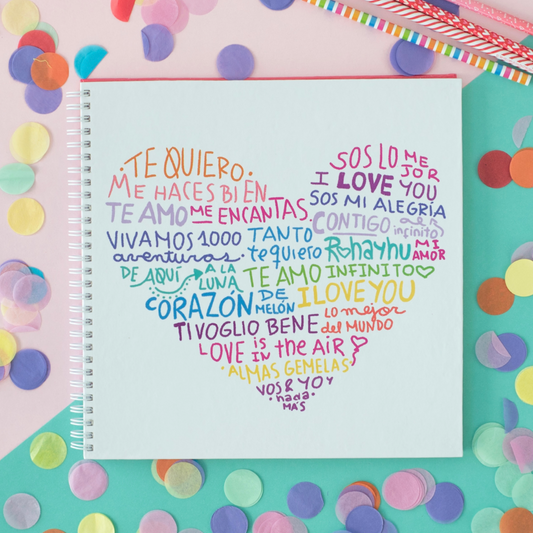 ·TE QUIERO·
SOS LO MEJOR
ME HACES BIEN
I LOVE YOU
TE AMO ME ENCANTAS
SOS MI ALEGRÍA
CONTIGO al infinito
VIVAMOS 1000 aventuras
TANTO te quiero
Rohayhu
MI AMOR
DE AQUÍ A LA LUNA
TE AMO INFINITO
CORAZÓN DE MELÓN
I LOVE YOU
TI VOGLIO BENE
LO mejor del MUNDO
LOVE IS IN the AIR
·ALMAS GEMELAS
VOS & YO
·nada·
MÁS